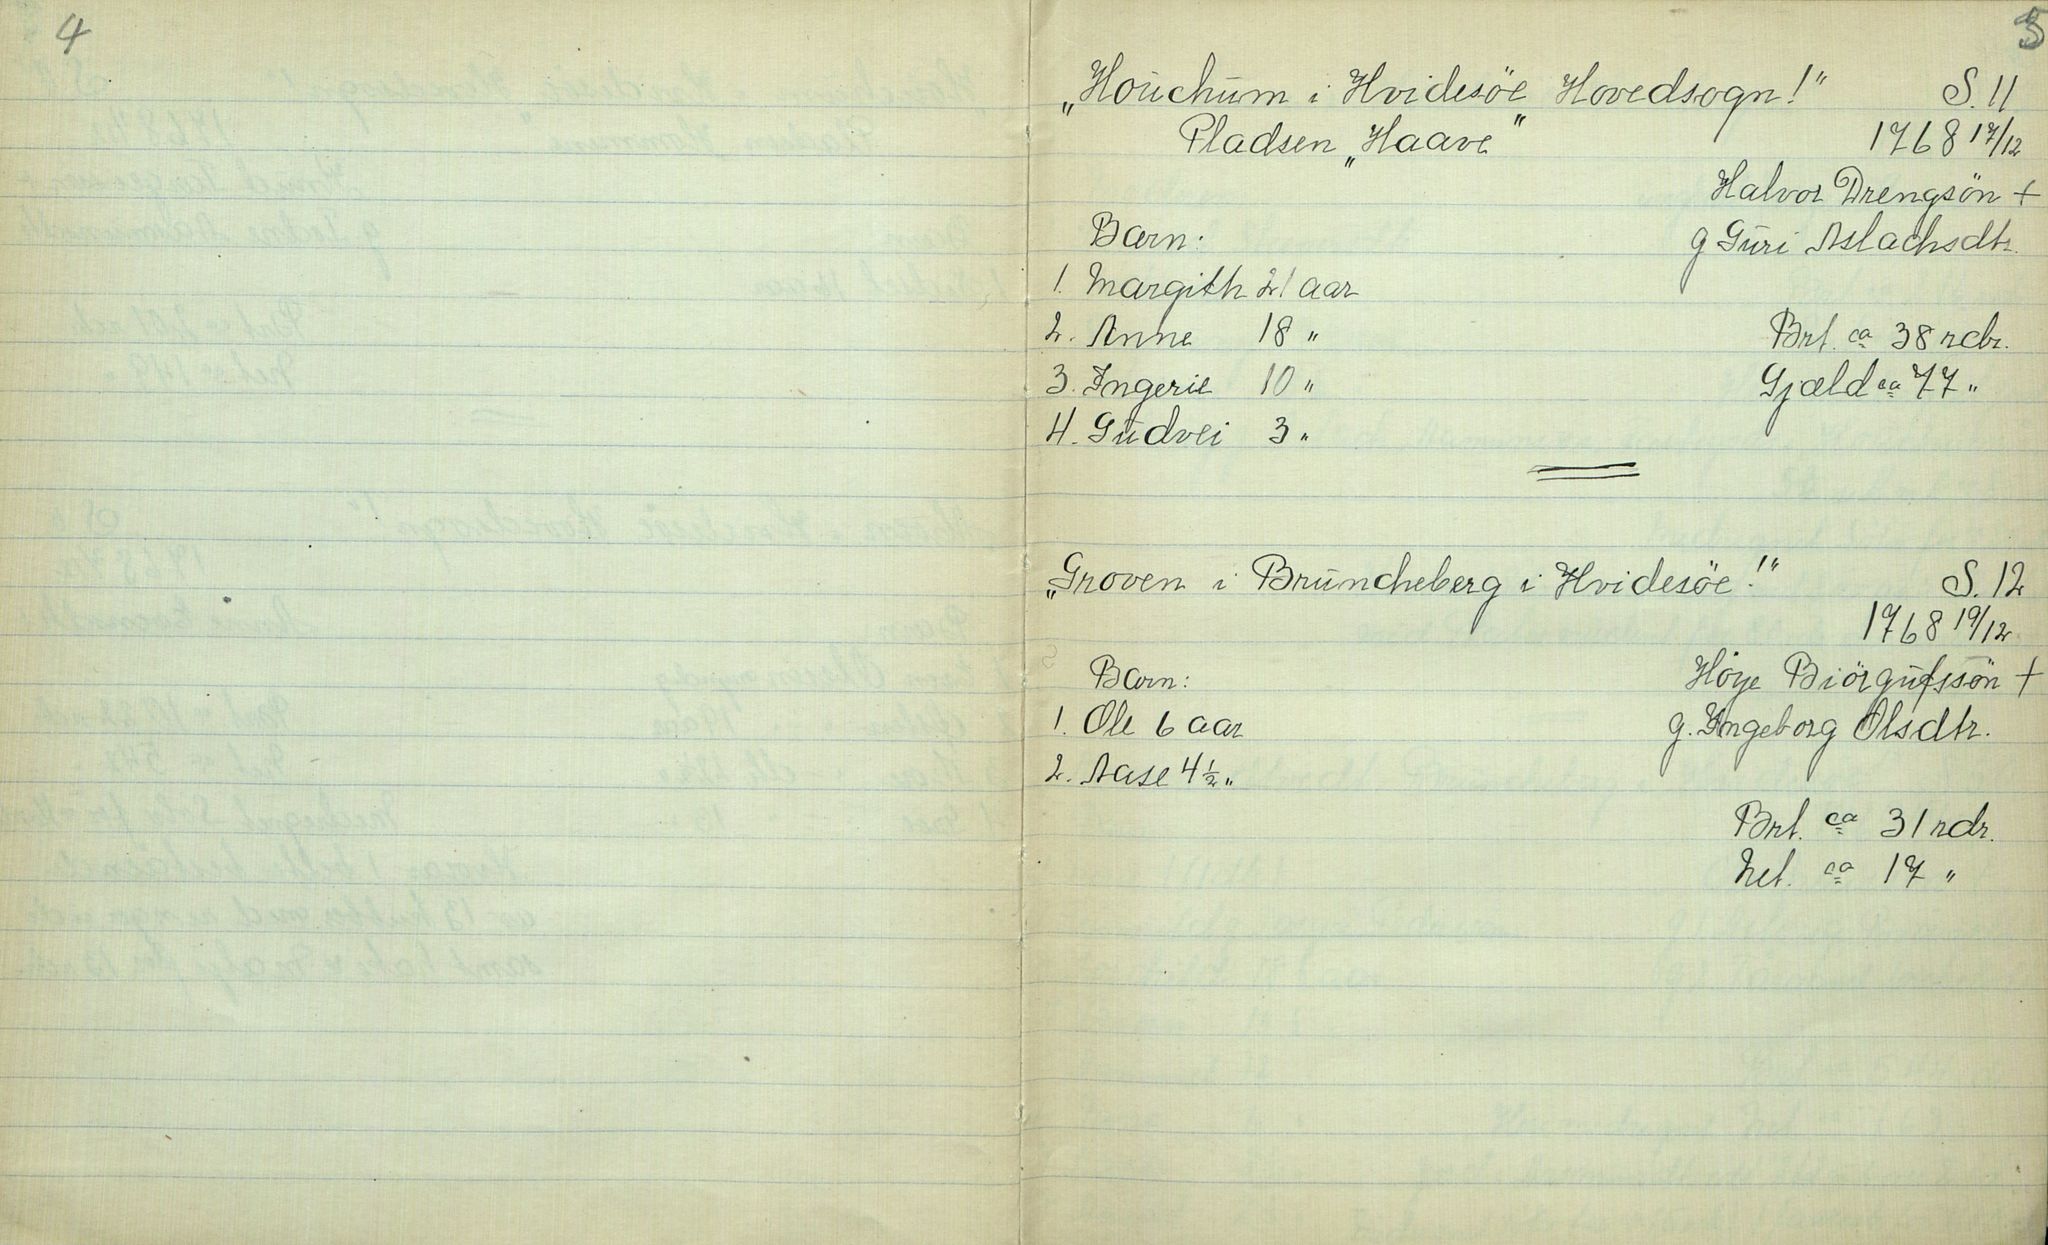 4
5
„Houchum i Hvidesöe Hovedsogn!" S. 11
Pladsen „Haave" 1768 17/12
Halvor Drengsön +
Barn: g Guri Aslachsdtr.
1. Margith 21 aar
2. Anne 18 " Brt. ca 38 rdr.
3. Ingerie 10 " Gjæld ca 77 "
4. Gudvei 3 "
„Groven i Bruncheberg i Hvidesöe!" S. 12
1768 19/12
Barn: Höye Biörgufssön +
1. Ole 6 aar g. Ingeborg Olsdtr.
2. Aase 4½ "
Brt. ca 31 rdr.
Net. ca 17 "